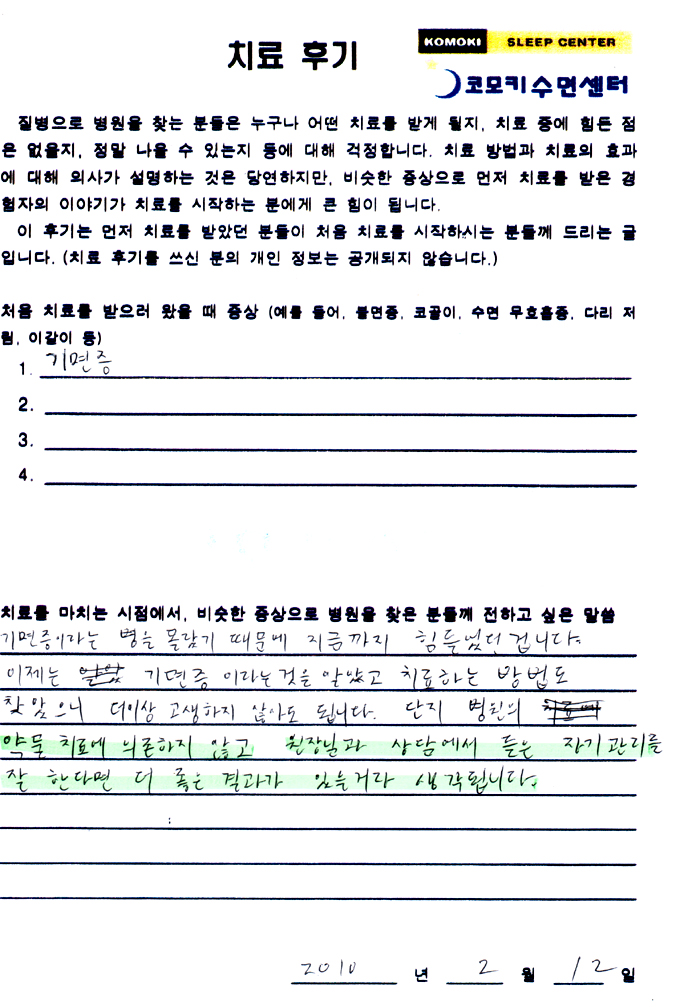 치료 후기
KOMOKI SLEEP CENTER
코모키수면센터
질병으로 병원을 찾는 분들은 누구나 어떤 치료를 받게 될지, 치료 중에 힘든 점
은 없을지, 정말 나을 수 있는지 등에 대해 걱정합니다. 치료 방법과 치료의 효과
에 대해 의사가 설명하는 것은 당연하지만, 비슷한 증상으로 먼저 치료를 받은 경
험자의 이야기가 치료를 시작하는 분에게 큰 힘이 됩니다.
이 후기는 먼저 치료를 받았던 분들이 처음 치료를 시작하시는 분들께 드리는 글
입니다. (치료 후기를 쓰신 분의 개인 정보는 공개되지 않습니다.)
처음 치료를 받으러 왔을 때 증상 (예를 들어, 불면증, 코골이, 수면 무호흡증, 다리 저
림, 이갈이 등)
1. 기면증
2.
3.
4.
치료를 마치는 시점에서, 비슷한 증상으로 병원을 찾은 분들께 전하고 싶은 말씀
기면증이라는 병을 몰랐기 때문에 지금까지 힘들었던 겁니다.
이제는 기면증 이라는것을 알았고 치료하는 방법도
찾았으니 더이상 고생하지 않아도 됩니다. 단지 병원의
약물 치료에 의존하지 않고 원장님과 상담에서 들은 자기관리를
잘 한다면 더 좋은 결과가 있을거라 생각됩니다.
2010 년 2 월 12 일